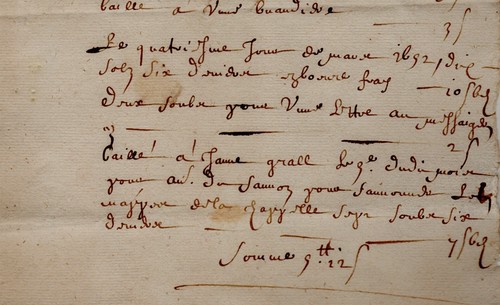 baille a Une buandiere
3 s
Le quatriesme Jour de mars 1692, dix
solz six deniers
10 s 6 d
deux soubz pour Une Lettre au messaiger
2 s
baillé a Janne grall Le 9e dudit mois
pour du savon pour
nappes de la chappelle sept soubz six
deniers
7 s 6 d
Somme 9 tt 12 s